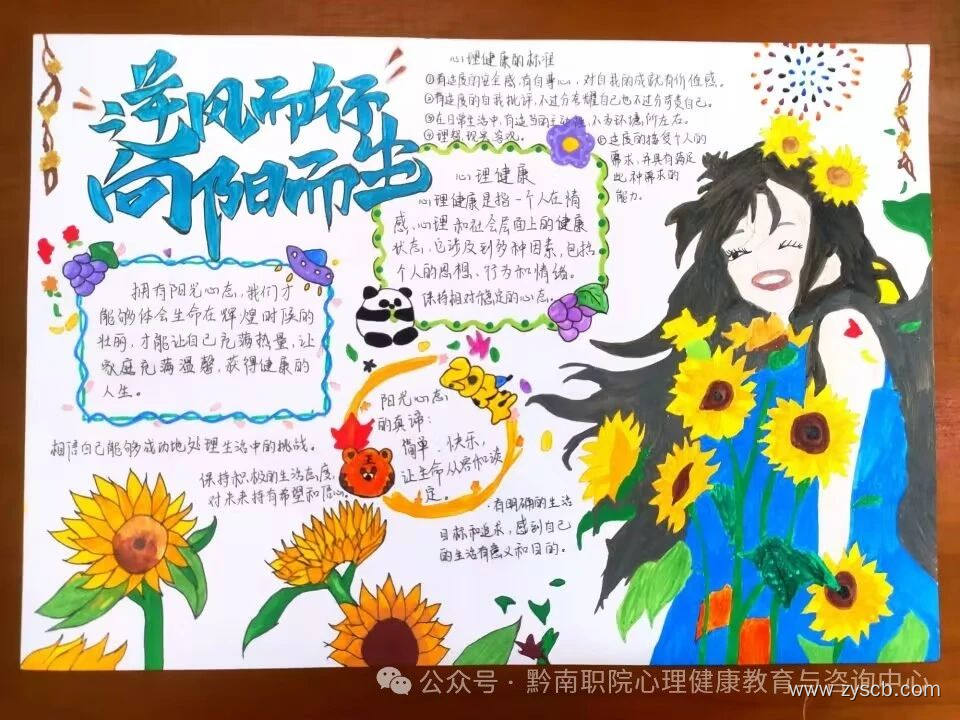 逆风而行
向阳而生
心理健康的标准
①有适度的安全感,有自尊心,对自我的成就有价值感。
②有适度的自我批评,不过分夸耀自己也不过分苛责自己。
③在日常生活中,有适当的主动性,不为环境所左右。
④理智,现实,客观。
⑤适度的接受个人的
需求,并具有满足
此种需求的
能力。
心理健康
心理健康是指一个人在情
感、心理和社会层面上的健康
状态,它涉及到多种因素,包括
个人的思想、行为和情绪。
保持相对稳定的心态。
拥有阳光心态,我们才
能够体会生命在辉煌时候的
壮丽,才能让自己充满热量,让
家庭充满温馨,获得健康的
人生。
相信自己能够成功地处理生活中的挑战。
保持积极的生活态度,
对未来持有希望和信心。
阳光心态,
的真谛:
简单、快乐,
让生命从容和淡
定。
·有明确的生活
目标和追求,感到自己
的生活有意义和目的。
公众号·黔南职院心理健康教育与咨询中心
www.zyscb.com